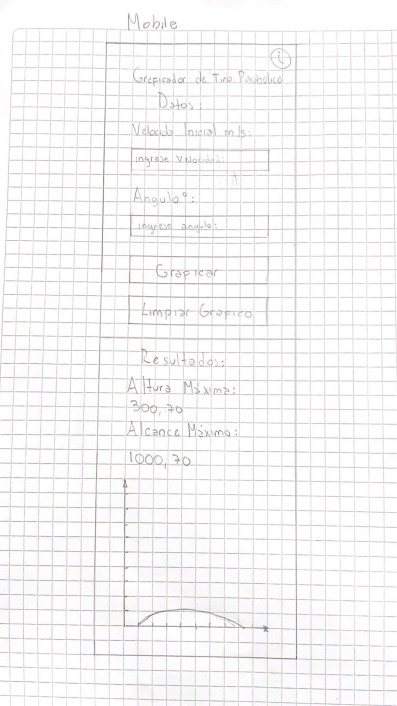 Mobile
i
Graficador de Tiro Parabolico
Datos:
Velocida Inicial m/s:
ingrese Velocidad:
Angulo°:
ingrese angulo:
Graficar
Limpiar Grafico
Resultados:
Altura Máxima:
300,70
Alcance Máximo:
1000,70